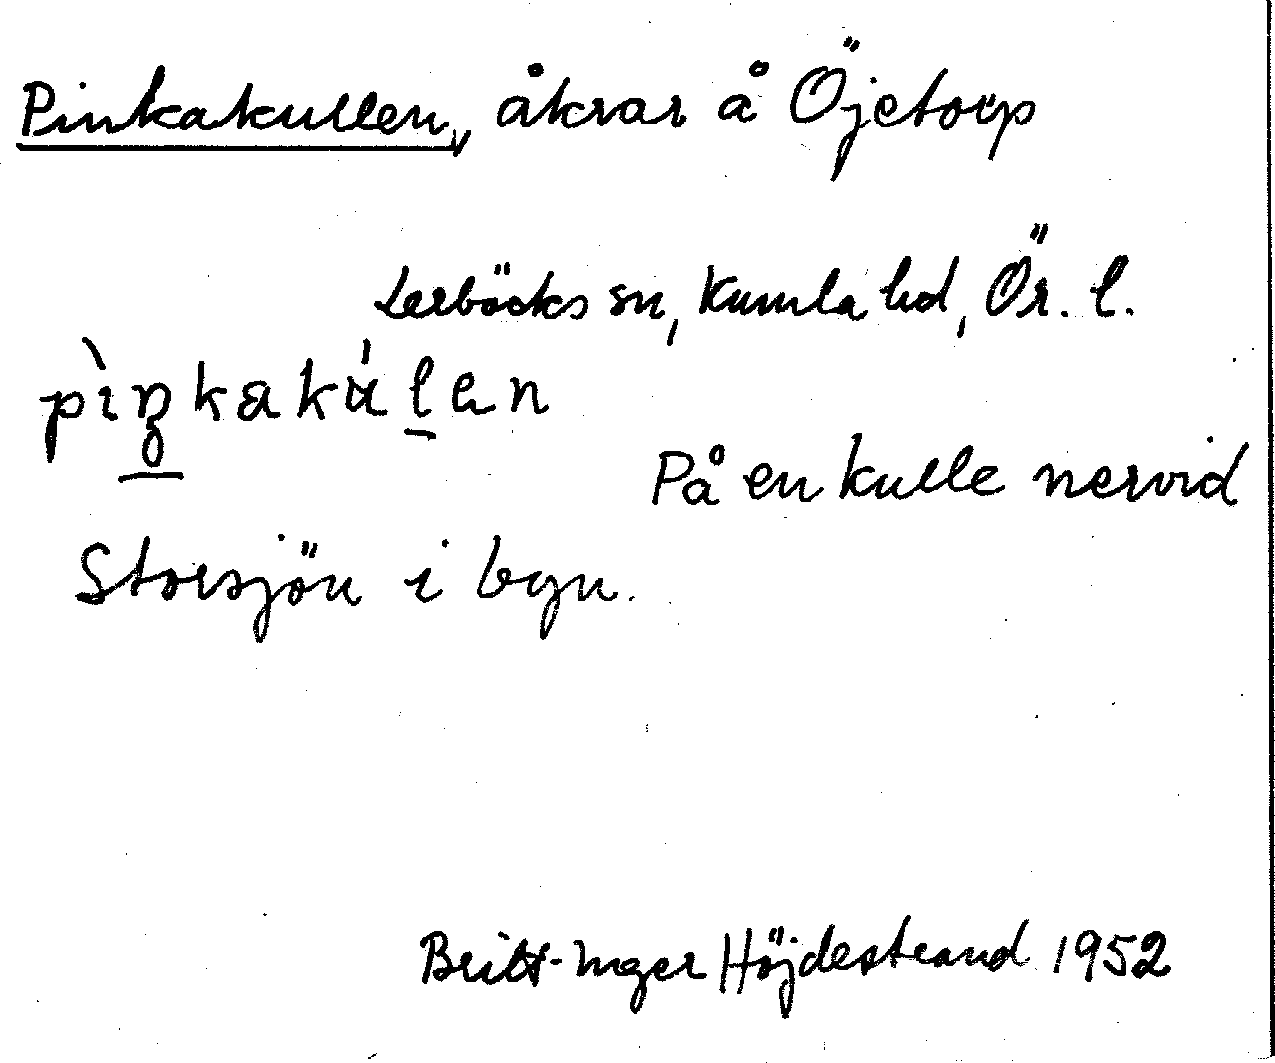 Pinkakullen, åkrar å Öjetorp
Lerbäcks sn, Kumla hd, Ör. l.
pìŋkakúlen
På en kulle nervid
Storsjön i byn.
Britt-Inger Höjdestrand 1952